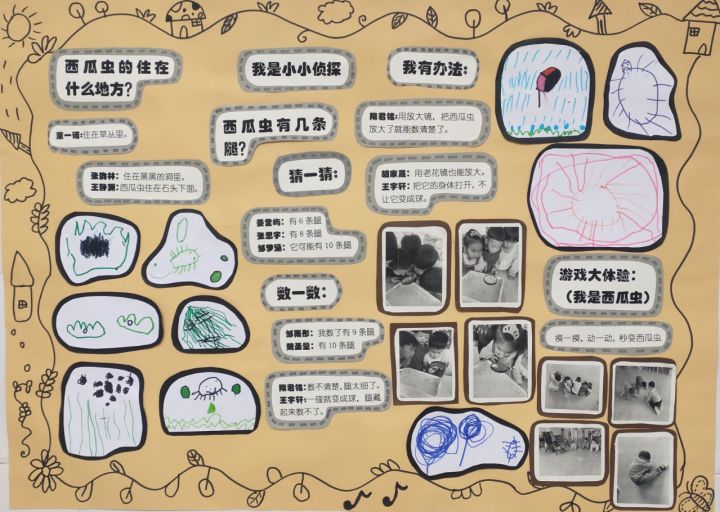 西瓜虫的住在
什么地方?
董一诺:住在草丛里。
张韵林:住在黑黑的洞里。
王静渊:西瓜虫住在石头下面。
我是小小侦探
西瓜虫有几条
腿?
猜一猜:
姜堂屿:有6条腿
张思宇:有8条腿
邹梦涵:它可能有10条腿
数一数:
邹雨彤:我数了有9条腿
:有10条腿
隋君铭:数不清楚,腿太细了。
王宇轩:一碰就变成球,腿藏
起来数不了。
我有办法:
隋君铭:用放大镜,把西瓜虫
放大了就能数清楚了。
胡家晟:用老花镜也能放大。
王宇轩:把它的身体打开,不
让它变成球。
游戏大体验:
(我是西瓜虫)
摸一摸,动一动,秒变西瓜虫